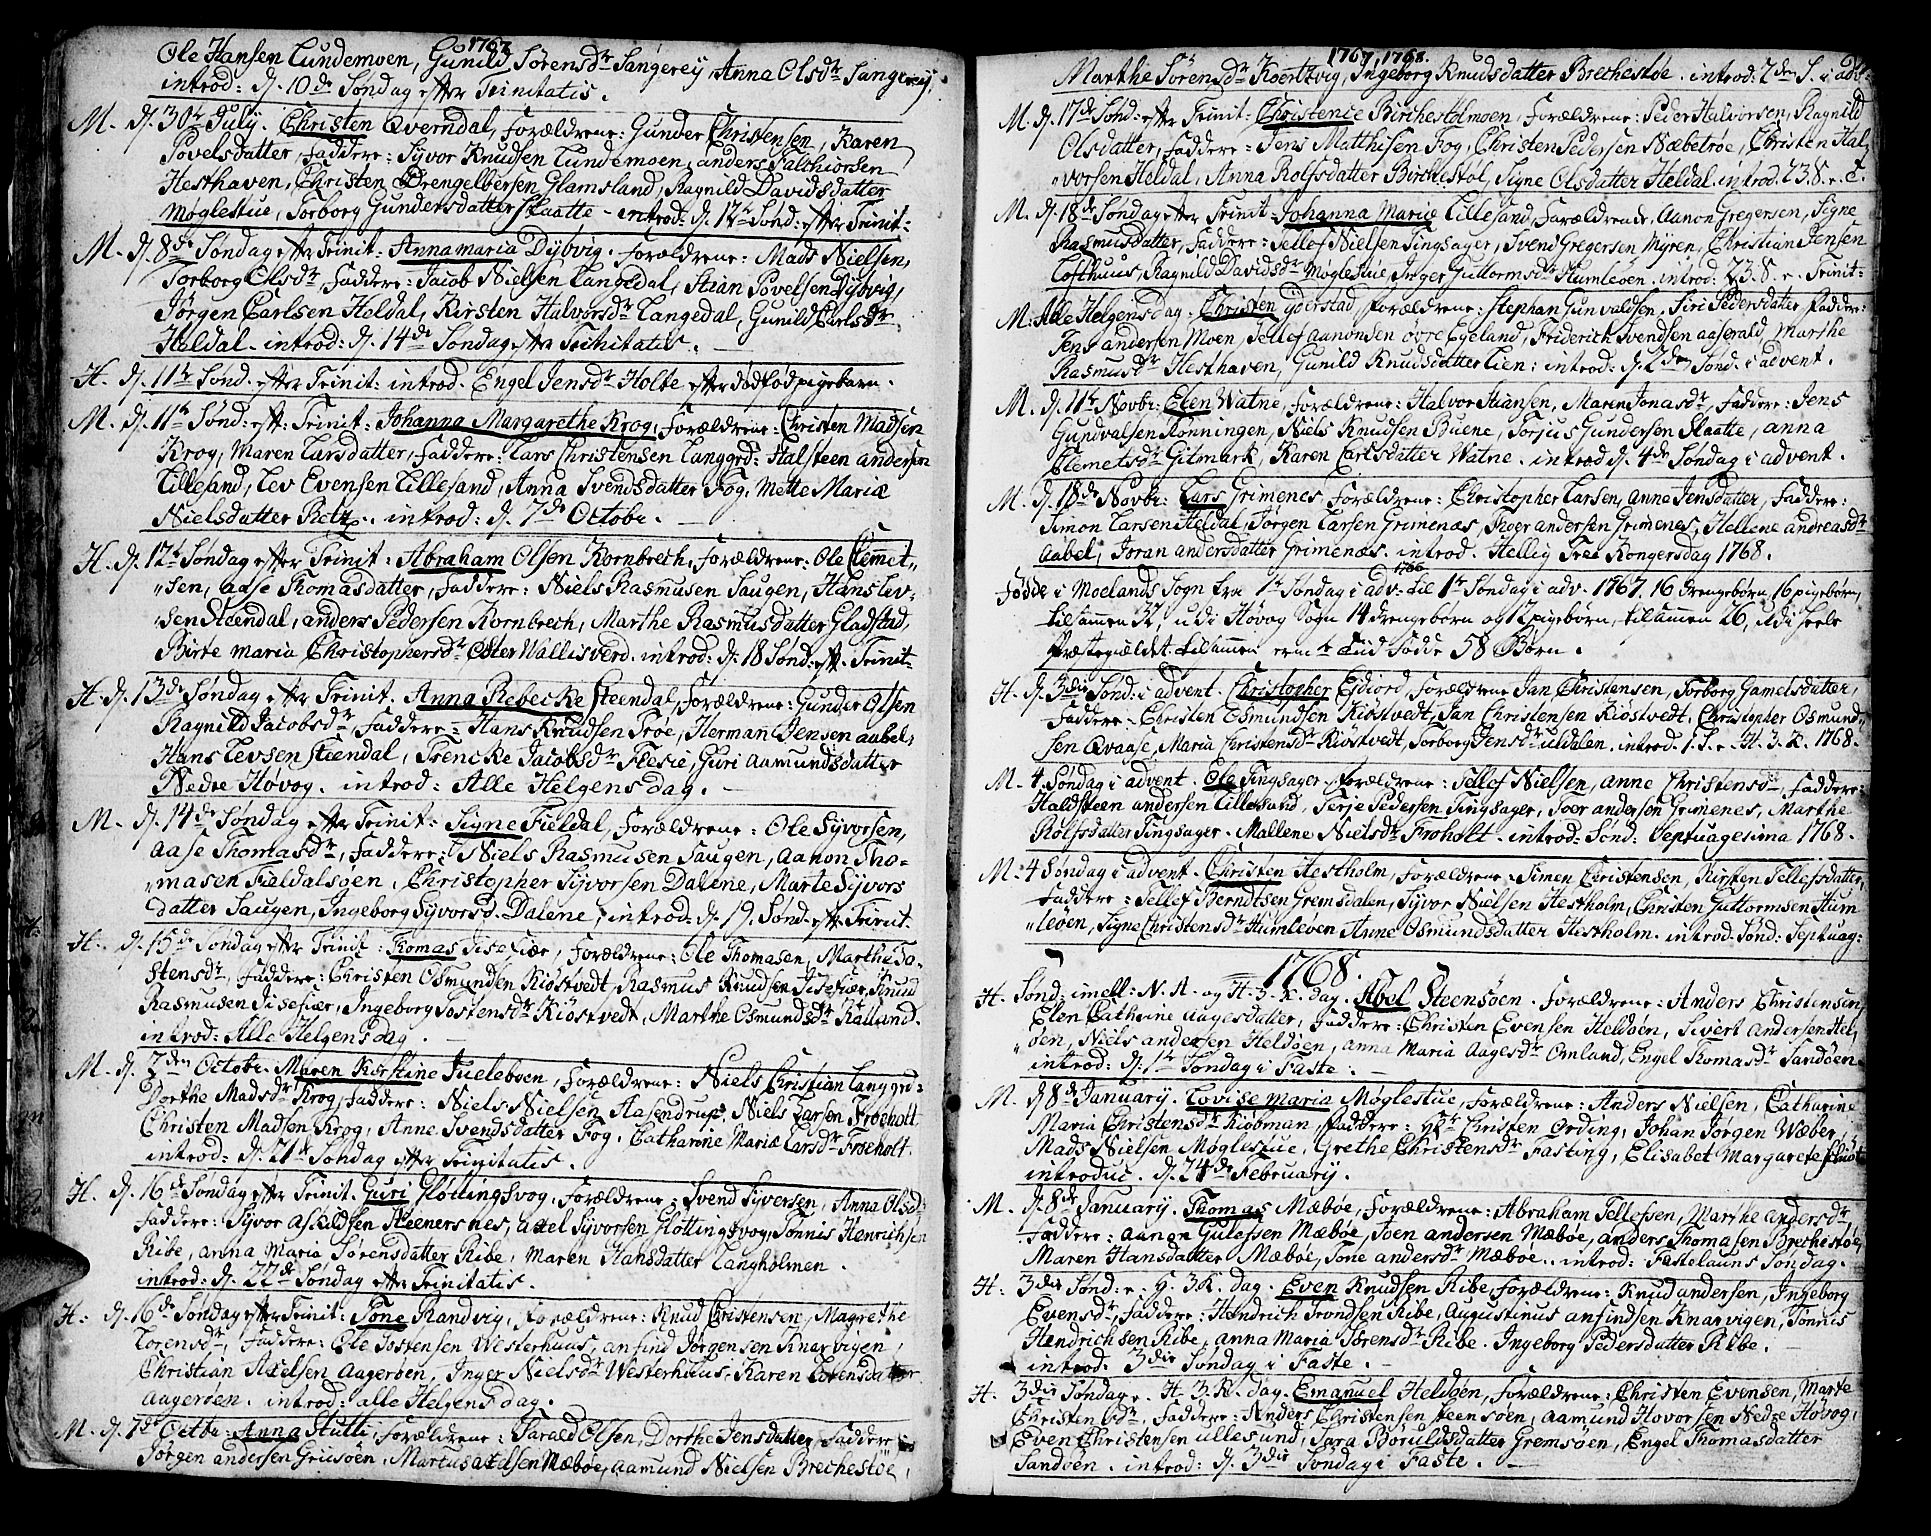 1767
Ole Hansen Lundemoen, Gunild Sørensdr Sangereÿ, Anna Olsdr Sangereÿ,
introd: d. 10de Søndag efter Trinitatis.
M. d. 30te July. Christen Qverndal, Forældrene: Gunder Christensen, Karen
Povelsdatter, Faddere: Syvor Knudsen Lundemoen, anders Falchiorsen
Hesthaven, Christen Engelbersen Glamsland, Ragnild Davidsdatter
Møglestue, Torborg Gundersdatter Skaatte - introd: d. 12te Sønd: efter Trinit:
M. d. 8de Søndag efter Trinit: Annamaria Dybvig. Forældrene: Mads Nielsen,
Torborg Olsdr, Faddere: Jacob Nielsen Langedal, Stian Povelsen Dybvig,
Jørgen Carlsen Heldal, Kirsten Halvorsdr Langedal, Gunild Carlsdr
Heldal - introd: d. 14de Søndag efter Trinitatis.
H. d. 11te Sønd. efter Trinit: introd. Engel Jensdr Holte efter dødfød pigebarn.
M. d. 11te Sønd: eft: Trinit: Johanna Margarethe Krog, Forældrene: Christen Madsen
Krog, Maren Larsdatter, Faddere: Lars Christensen Langgrd: Halsteen andersen
Lillesand, Lev Evensen Lillesand, Anna Svendsdatter Fog, Mette Mariæ
Nielsdatter Retz. introd: d. 7de Octobr.
H. d. 12te Søndag efter Trinit: Abraham Olsen Kornbrech, Forældrene: Ole Clemet-
sen, aase Thomasdatter, Faddere: Niels Rasmusen Saugen, Hans Lev-
sen Steendal, anders Pedersen Kornbrech, Marthe Rasmusdatter Gladstad,
Birte maria Christophersdr Oster Wallisverd. introd: d. 18 Sønd: eft: Trinit:
H. d. 13de Søndag efter Trinit. Anna Rebecke Steendal, Forældrene: Gunder Olsen
Ragnild Jacobsdr, Faddere: Hans Knudsen Trøe, Herman Jensen aabel,
Hans Levsen Steendal, Trencke Jacobsdr Flesie, Guri Aamundsdatter
Nedre Høvog. introd: Alle Helgens dag.
M. d. 14de Søndag efter Trinit: Signe Fieldal, Forældrene: Ole Syvorsen,
Aase Thomasdr, Faddere: Niels Rasmusen Saugen, Aanon Tho-
masen Fieldalsøen, Christopher Syvorsen Dalene, Marte Syvors
datter Saugen, Ingeborg Syvorsd. Dalene, introd: d. 19. Sønd. eft: Trinit.
H. d. 15de Søndag efter Trinit: Tomas Tisefiær, Forældrene: Ole Thomasen, Marthe To-
stensdr, Faddere: Christen Osmunden Kiøstvedt, Rasmus Knudsen Tisefiær, Knud
Rasmusen Tisefiær, Ingeborg Tostensdr Kiøstvedt, Marthe Osmundsdr Kalland.
introd: Alle Helgens dag.
M. d. 2den Octobr. Maren Kirstine Fueleboen, Forældrene: Niels Christian Langgrd:
Dorthe Madsdr Krog, Faddere: Niels Nielsen Aasendrup, Niels Larsen Froeholt
Christen Madsen Krog, Anne Svendsdatter Fog, Catharine Mariæ Larsdr Froeholt.
introd: d. 21de Søndag efter Trinitatis.
H. d. 16de Søndag efter Trinit. Guri Sløttingsvog, Forældrene: Svend Syversen, Anna Olsdr
Faddere: Syvor askildsen Steenersnes, axel Syvorsen Slottingsvog, Tønnis Henrichsen
Ribe, Anna Maria Sørensdatter Ribe, Maren Hansdatter Langholmen.
introd: d. 22de Søndag efter Trinitatis.
H. d. 16de Søndag efter Trinit: Tone Randvig, Forældrene: Knud Christensen, Magrethe
Lorensdr, Faddere: Ole Jostensen Westerhuus, anfind Jørgensen Knarvigen,
Christian Axelsen Aagerøen, Inger Nielsdr Westerhuus, Karen Lorensdatter
Aagerøen. introd: alle Helgens dag.
M. d. 7de Octbr: Anna Stutte, Forældrene: Harald Olsen, Dorthe Jensdatter, Faddere:
Jørgen andersen Griisøen, Martus axelsen Mæbøe, aamund Nielsen Brechestøe,
1767, 1768.
Marthe Sørensdr Kortevig, Ingeborg Knudsdatter Brechestøe. introd: 2den S. i adv:
M. d. 17de Sønd: efter Trinit: Christence Birchestolmoen, Forældrene: Peder Halvorsen, Ragnild
Olsdatter, Faddere: Jens Matthisen Fog, Christen Pedersen Næbetrøe, Christen Hal-
vorsen Heldal, Anna Rolfsdatter Birchestøl, Signe Olsdatter Heldal. introd. 23. S. e. T.
M. d. 18de Søndag efter Trinit - Johanna Mariæ Lillesand, Forældrene, Aanon Gregersen, Signe
Rasmusdatter, Faddere: Tellef Nielsen Tingsager, Svend Gregersen Myren, Christian Jensen
Lofthuus, Ragnild Davidsdr Møglestue, Inger Guttormsdr Humleøen. introd: 23. S. e. Trinit:
M: Alle Helgensdag. Christen Egderstad, Forældrene: Stephan Gunvaldsen, Siri Pedersdatter, Faddere:
Jens andersen Moen, Tellef Aanonsen øvre Egeland, Friderich Svendsen aaserald, Marthe
Rasmusdr Hesthaven, Gunild Knudsdatter Lien: introd: d. 2den Sønd. i advent.
M. d. 11te Novbr: Elen Watne, Forældrene: Halvor Stiansen, Maren Jonasdr, Faddere: Jens
Gundvalsen Rønningen, Niels Knudsen Buene, Torjus Gundersen Skaatte, anna
Clemetsdr Gitmark, Karen Carlsdatter Watne. introd d. 4de Søndag i advent.
M. d. 18de Novbr: Lars Grimenes, Forældrene: Christopher Larsen, Anne Jensdatter, Faddere:
Simon Larsen Heldal, Jørgen Larsen Grimenæs, Roer andersen Grimenes, Hellene andreasdr
aabel, Joran andersdatter Grimenæs. introd. Hellig Tree Kongersdag 1768.
Fødde i Moelands Sogn fra 1te Søndag i adv: 1766 til 1te Søndag i adv. 1767. 16 drengebørn, 16 pigebørn,
tilsammen 32, udi Høvog Sogn 14 drengebørn og 12 pigebørn, tilsamen 26, udi heele
Præstegieldet tilsamen ermt tiid fødde 58 Børn.
H. d. 3die Sønd: i advent. Christopher Eidjord, Forældrene Jan Christensen, Torborg Gamelsdatter,
Faddere - Christen Osmundsen Kiøstvedt, Jan Christensen Kiøstvedt, Christopher Osmund-
sen Qvaase, Maria Christensdr Kiøstvedt, Torborg Jensdr uldalen. introd. 1. S. e. H. 3. K. 1768.
M. 4. Søndag i advent. Ole Tingsager, Forældrene: Tellef Nielsen, anne Christensdr, Faddere:
Haldsteen andersen Lillesand, Terje Pedersen Tingsager, Joer andersen Grimenes, Marthe
Rolfsdatter Tingsager - Mallene Nielsdr Froholt - introd: Sønd: Septuagesima 1768.
M: 4 Søndag i advent. Christen Hestholm, Forældrene: Simen Christensen, Kirsten Tellefsdatter,
Faddere: Tellef Berndtsen Gremsdalen, Syvor Nielsen Hestholm, Christen Guttormsen Hum
leøen, Signe Christensdr Humleøen Anne Osmundsdatter Hestholm. introd. Sønd: Septuag:
1768.
H. Sønd: imell: N. A. og H. 3. K. dag. Abel Steensøen. Forældrene: Anders Christensen,
Elen Cathrine Aagesdatter, Faddere: Christen Evensen Heldøen, Sivert Andersen Hel-
øen, Niels andersen Heldøen, Anna Maria Aagesdr Omland, Engel Thomasdr Sandøen
introd: d. 1te Søndag i Faste.
M. d 8de January. Lovise maria Møglestue, Forældrene: Anders Nielsen, Catharine
Maria Christensdr Kiøbman, Faddere: Hr Christen Ording, Johan Jørgen Wæber,
Mads Nielsen Møglestue, Grethe Christensdr Fasting, Elisabet Margarete
introduc. d. 24de February.
M. d. 8de January. Thomas Mæbøe, Forældrene: Abraham Tellefsen, Marthe andersdr
Faddere: aanon Gulefsen Mæbøe, Joen andersen Mæbøe, anders Thomasen Brechestøe,
Maren Hansdatter Mæbøe, Tone andersdr Mæbøe. introd: Fastelauns Søndag.
H: 3die Sønd: e. H. 3. K. dag. Even Knudsen Ribe, Forældrene: Knud andersen, Ingeborg
Evensdr, Faddere: Hendrich Trondsen Ribe, Augustinus anfindsen Knarvigen, Tønnis
Hendrichsen Ribe, Anna Maria Sørensdr Ribe. Ingeborg Pedersdatter Ribe.
introd: 3die Søndag i Faste.
H. 3die Søndag e. H. 3. K. dag. Emanuel Heldøen, Forældrene: Christen Evensen, Marte
Christensdr, Faddere: Anders Christensen Steensøen, Aamund Hovorsen Nedre Høvog,
Even Christensen ullesund, Sara Børuldsdatter Gremsøen, Engel Thomasdatter
Sandøen. introd: d. 3die Søndag i Faste.